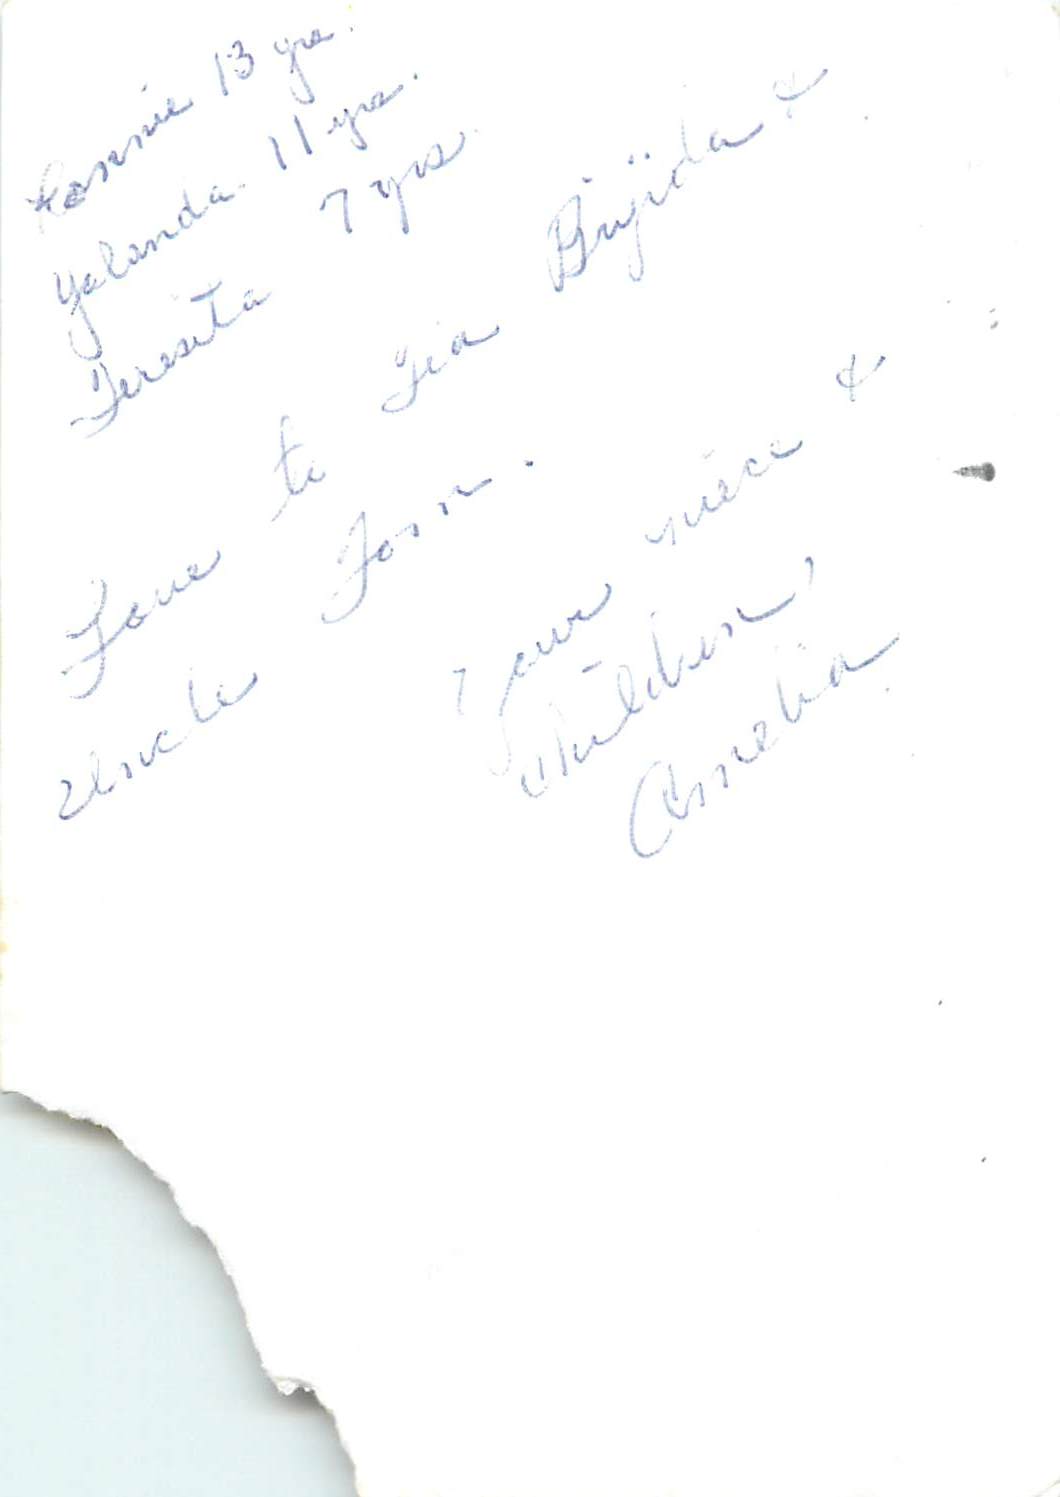 Ronnie 13 yrs.
Yolanda 11 yrs.
Teresita 7 yrs.
Love to Tia Brijida &
Uncle Tom.
Your niece &
children
Amelia